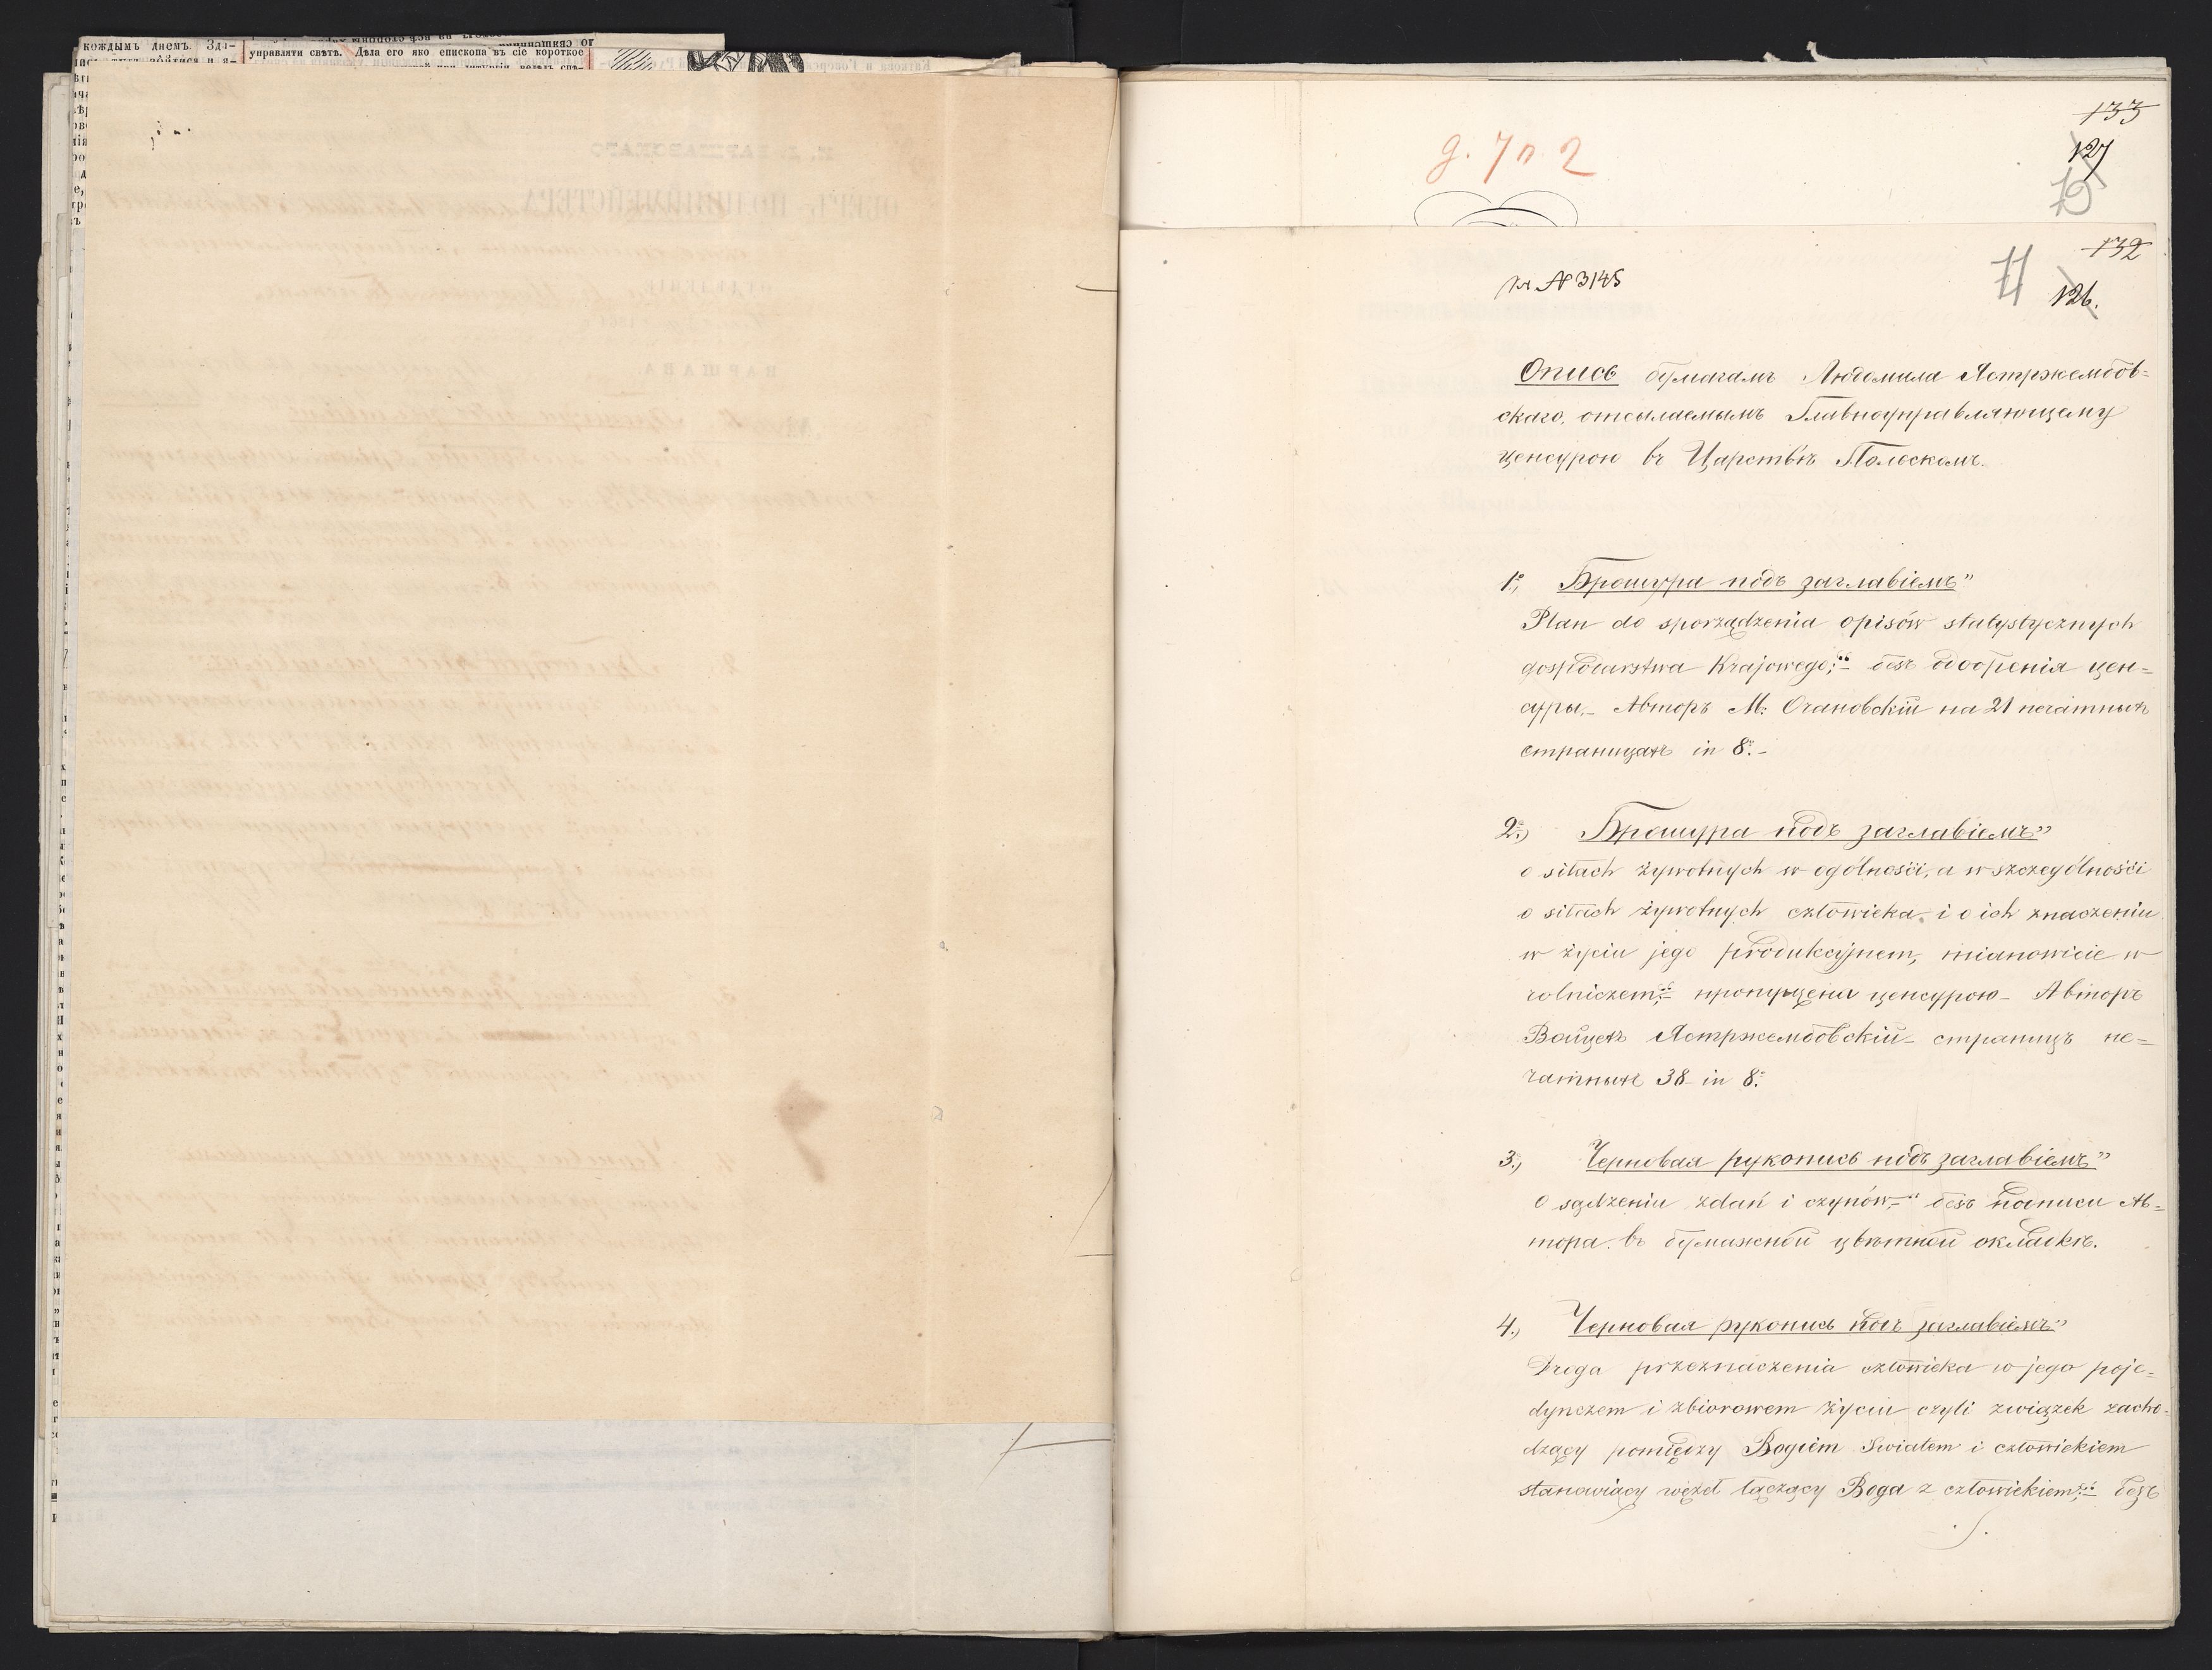 кождымъ днемъ. Зда-
управляти свѣтѣ. Дѣла его яко епископа въ сіе короткое
133
127
д. 7 л. 2
132
126.
къ № 3145
Опись бумагамъ Людомила Ястржембов=
скаго, отсылаемымъ Главноуправляющему
ценсурою въ Царствѣ Польскомъ.
1., Брошура подъ заглавіемъ"
Plan do sporządzenia opisów statystycznych
gospodarstwa Krajowego;" безъ одобренія цен=
суры,- Авторъ М: Очаповскій на 21 печатныхъ
страницахъ in 8.-
2.) Брошура подъ заглавіемъ"
o siłach żywotnych w ogólności, a w szczególności
o siłach żywotnych człowieka i o ich znaczeniu
w życiu jego produkcyjnem, mianowicie w
rolniczem;" пропущена ценсурою- Авторъ
Войцехъ Ястржембовскій- страницъ пе=
чатныхъ 38 in 8.
3.) Черновая рукопись подъ заглавіемъ"
O sądzeniu zdań i czynów-" безъ подписи Ав=
тора. въ бумажной цвѣтной окладкѣ.
4.) Черновая рукопись подъ заглавіемъ"
Droga przeznaczenia człowieka w jego poje=
dynczem i zbiorowem życiu czyli związek zacho-
dzący pomiędzy Bogiem Swiatem i człowiekiem
stanowiący węzeł łączący Boga z człowiekiem;" безъ